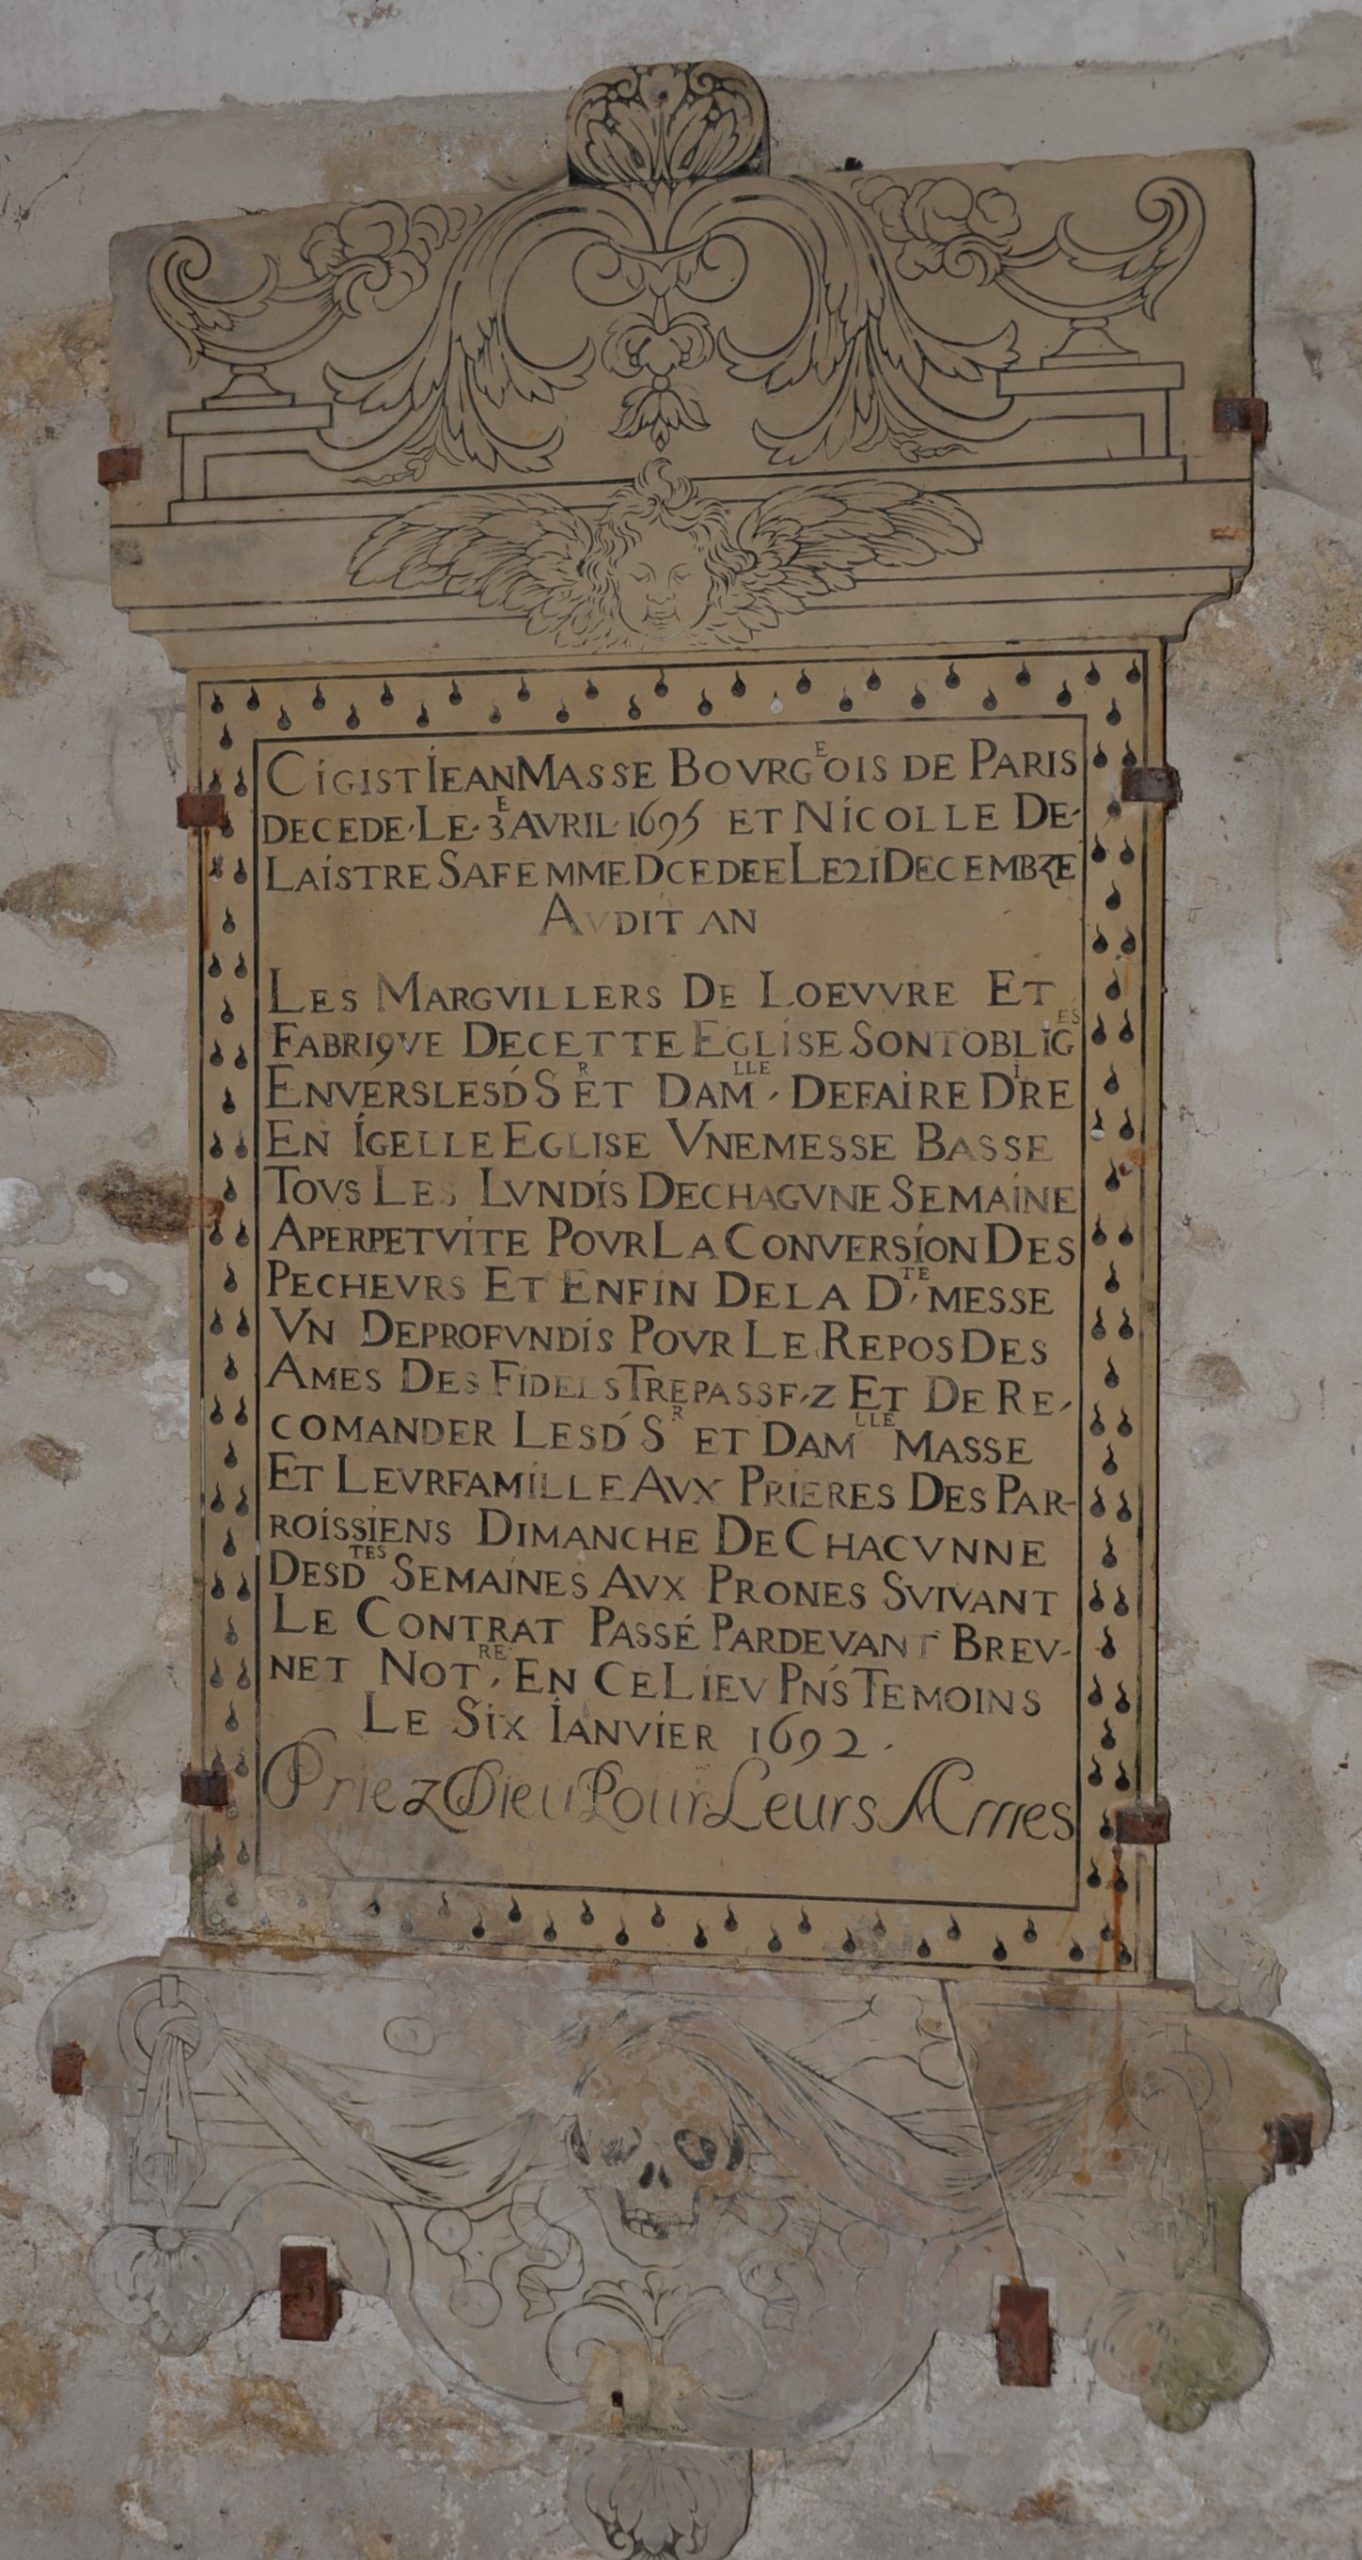 CIGIST IEAN MASSE BOVRGEOIS DE PARIS
DECEDE·LE·3E AVRIL·1695 ET NICOLLE DE-
LAISTRE SA FEMME DCEDEE LE 21 DECEMBRE
AVDIT AN
LES MARGVILLERS DE LOEVVRE ET
FABRIQVE DE CETTE EGLISE SONT OBLIGES
ENVERS LESD' SR ET DAMLLE, DE FAIRE DIRE
EN IGELLE EGLISE VNE MESSE BASSE
TOVS LES LVNDIS DE CHAGVNE SEMAINE
A PERPETVITE POVR LA CONVERSION DES
PECHEVRS ET ENFIN DE LA DTE, MESSE
VN DEPROFVNDIS POVR LE REPOS DES
AMES DES FIDELS TREPASSEZ ET DE RE-
COMANDER LESD' SR ET DAMLLE MASSE
ET LEVR FAMILLE AVX PRIERES DES PAR-
ROISSIENS DIMANCHE DE CHACVNNE
DESDTES SEMAINES AVX PRONES SVIVANT
LE CONTRAT PASSÉ PARDEVANT BREV-
NET NOTRE, EN CE LIEV PN'S TEMOINS
LE SIX IANVIER 1692.
Priez Dieu Pour Leurs Ames